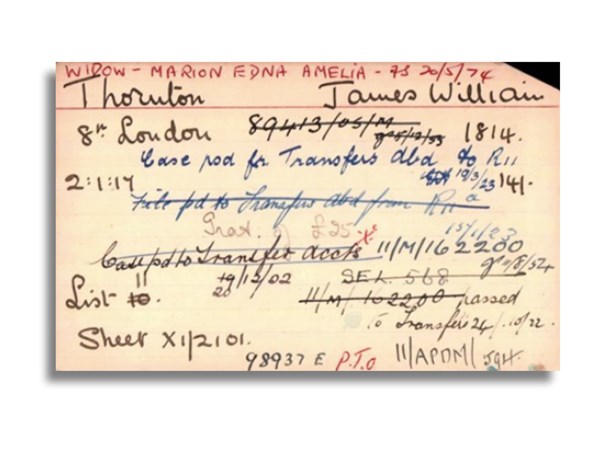 WIDOW - MARION EDNA AMELIA - 20/5/74
Thornton James William
8th London 89413/05/M 1814.
Case psd for Transfers abd to R11
2:1:17 19/3/23 141.
File pd to Transfers abd from R11a
15/1/23
Grat. £25.
Case pd to Transfer accts 11/M/162200
11 19/12/02 SEL 568
20
List 10. 11/M/162200 passed
to Transfers 24/10/22.
Sheet X1/2101.
98937 E P.T.O 11/APDM/